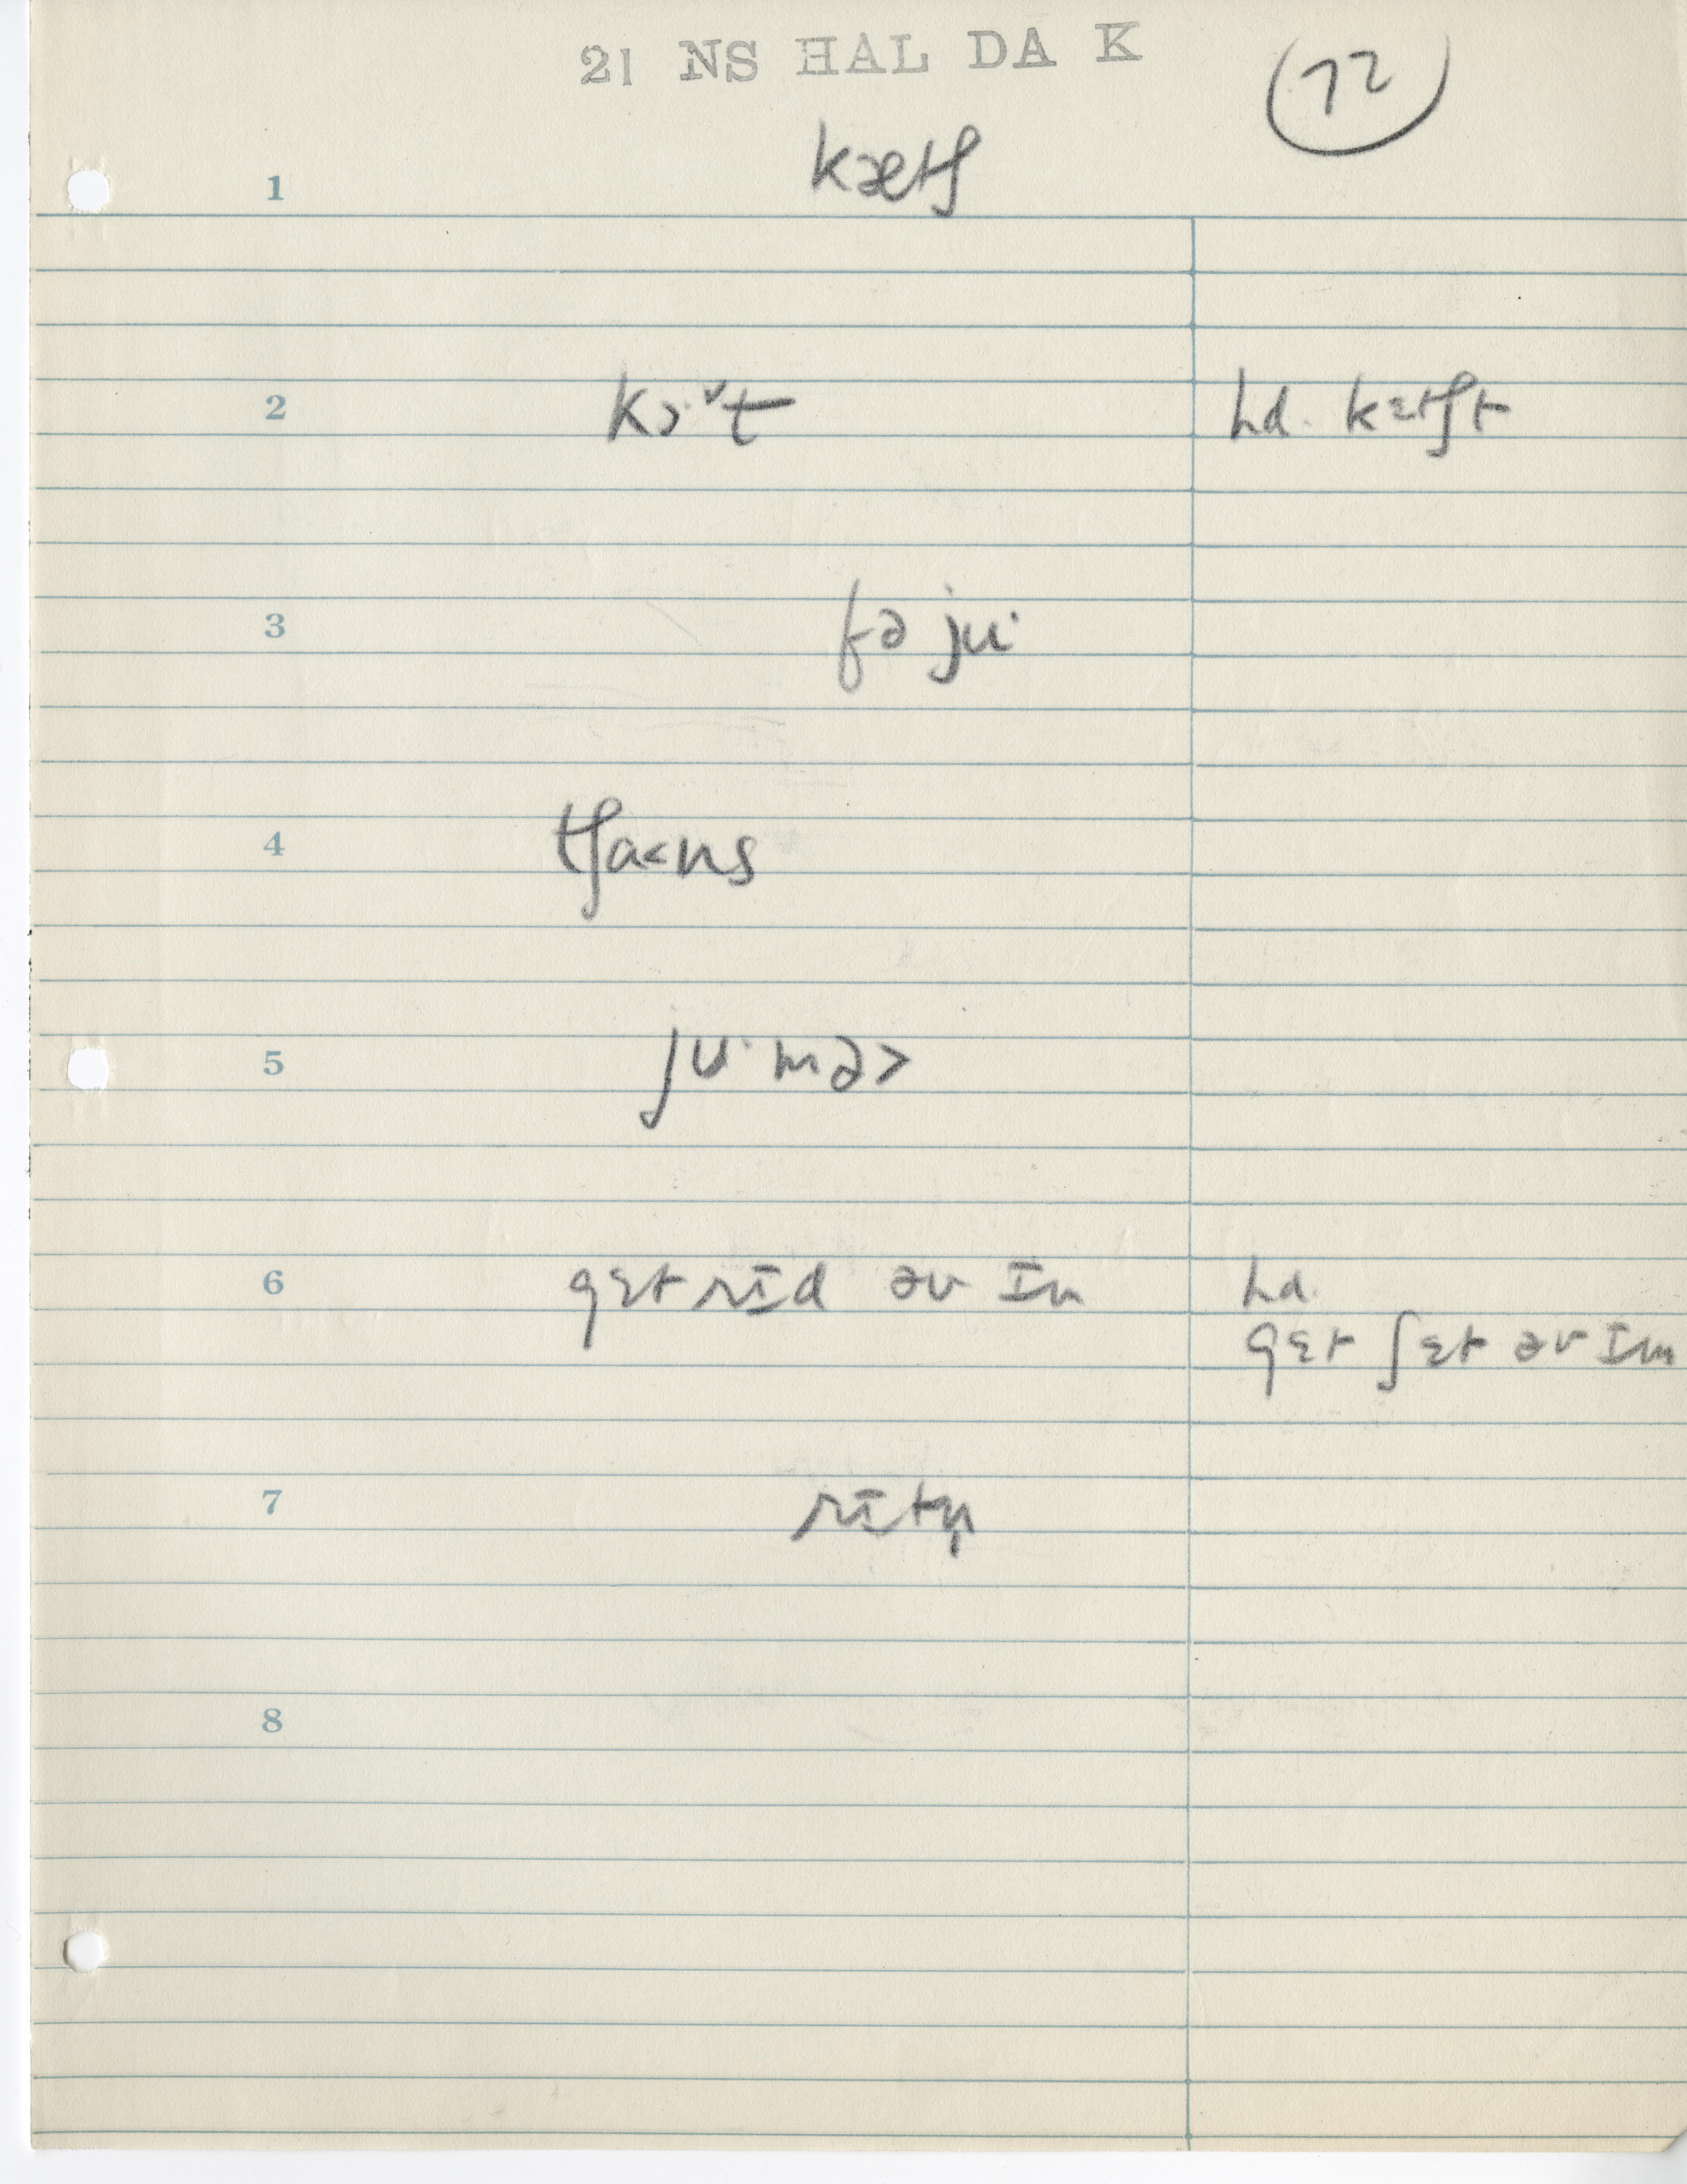 21 NS HAL DA K
72
1 kætʃ
2 kɔ·ˇt hd. kɛtʃt
3 fə ju·
4 tʃa<ns
5 ʃu·mə>
6 gɛt rɪd əv ɪm hd.
gɛt ʃɛt əv ɪm
7 rɪtn̩
8